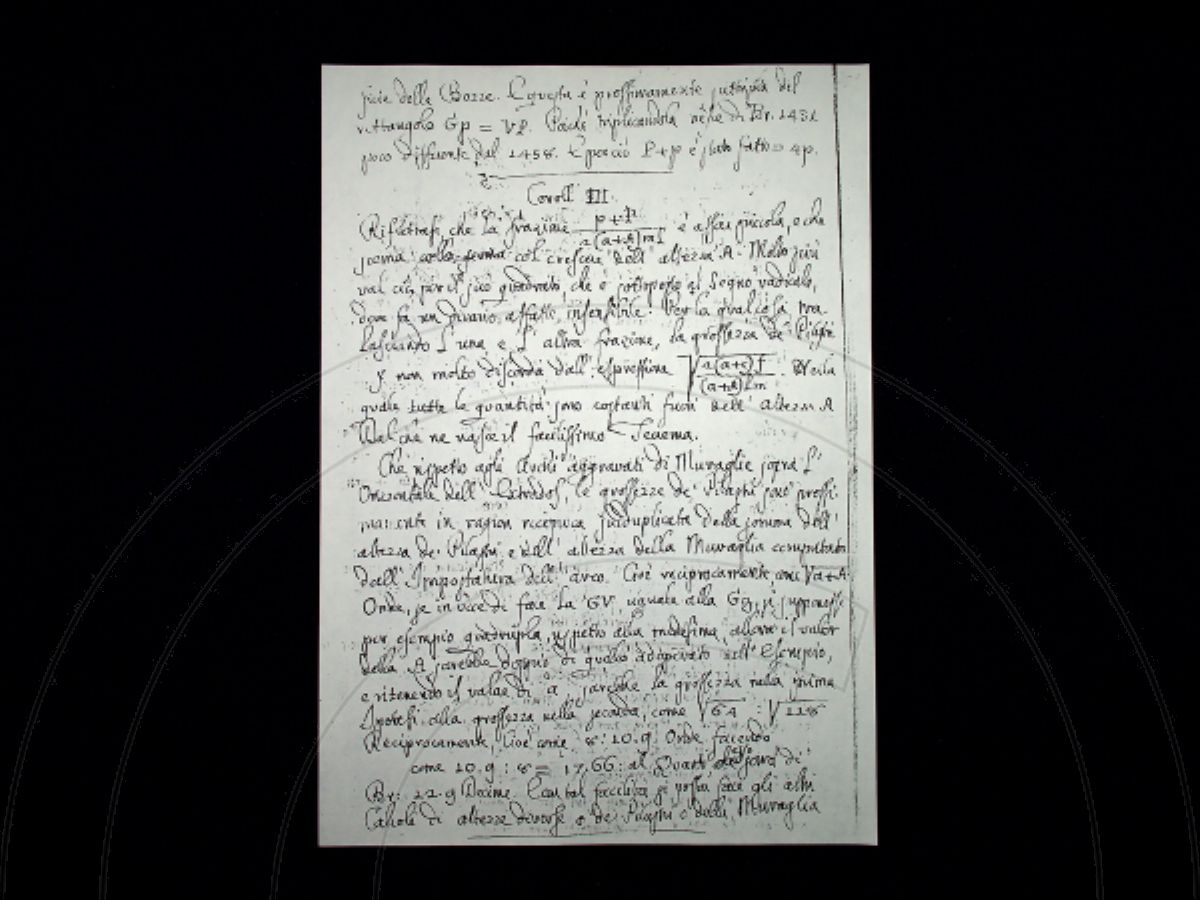 ficie delle Bozze. E questa è prossimamente sutripla del
rettangolo Gp = VP. Poichè triplicandola viene di Br. 1431
poco differente dal 1458. E perciò P+p è stato fatto = 4p.
Coroll III.
Riflettasi, che la frazione p+P / 2(a+A)mf è assai piccola, e che
scema col crescere dell' altezza A. Molto più
val ciò per il suo quadrato, che è sottoposto al segno radicale,
dove fa un divario affatto insensibile. Per la qual cosa tra-
lasciando l' una e l' altra frazione, la grossezza de' Piloni
non molto discorda dall' espressione √ a(a+c)f / (a+A)lm . Nella
quale tutte le quantità sono costanti fuori dell' altezza A
Dal che ne nasce il facilissimo Teorema.
Che rispetto agli Archi aggravati di Muraglie sopra l'
Orizontale dell' Estrados, le grossezze de' Pilastri sono prossi-
mamente in ragion reciproca sudduplicata della somma dell'
altezza de' Pilastri e dell' altezza della Muraglia computata
dall' Impostatura dell' arco. Cioè reciprocamente come √a+A.
Onde, se in vece di fare la GV, uguale alla Gg, si supponesse
per esempio quadrupla, rispetto alla medesima, allora il valor
della A sarebbe doppio di quello adoperato nell' Esempio,
e ritenendo il valore di a, sarebbe la grossezza nella prima
Ipotesi alla grossezza nella seconda, come √64 : √118
Reciprocamente, Cioè come 8 : 10.9. Onde facendo
come 10.9 : 8 = 17.66: al Quarto di
Br: 12.9 Decime. Con tal facilità si posson fare gli altri
Calcoli di altezze diverse o de' Pilastri o della Muraglia